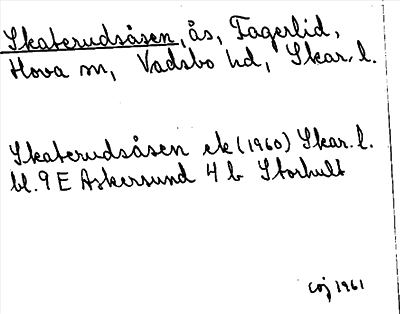 Skaterudsåsen, ås, Fagerlid,
Hova sn, Vadsbo hd, Skar. l.
Skaterudsåsen ek (1960) Skar. l.
bl. 9 E Askersund 4 b Storhult
COJ 1961